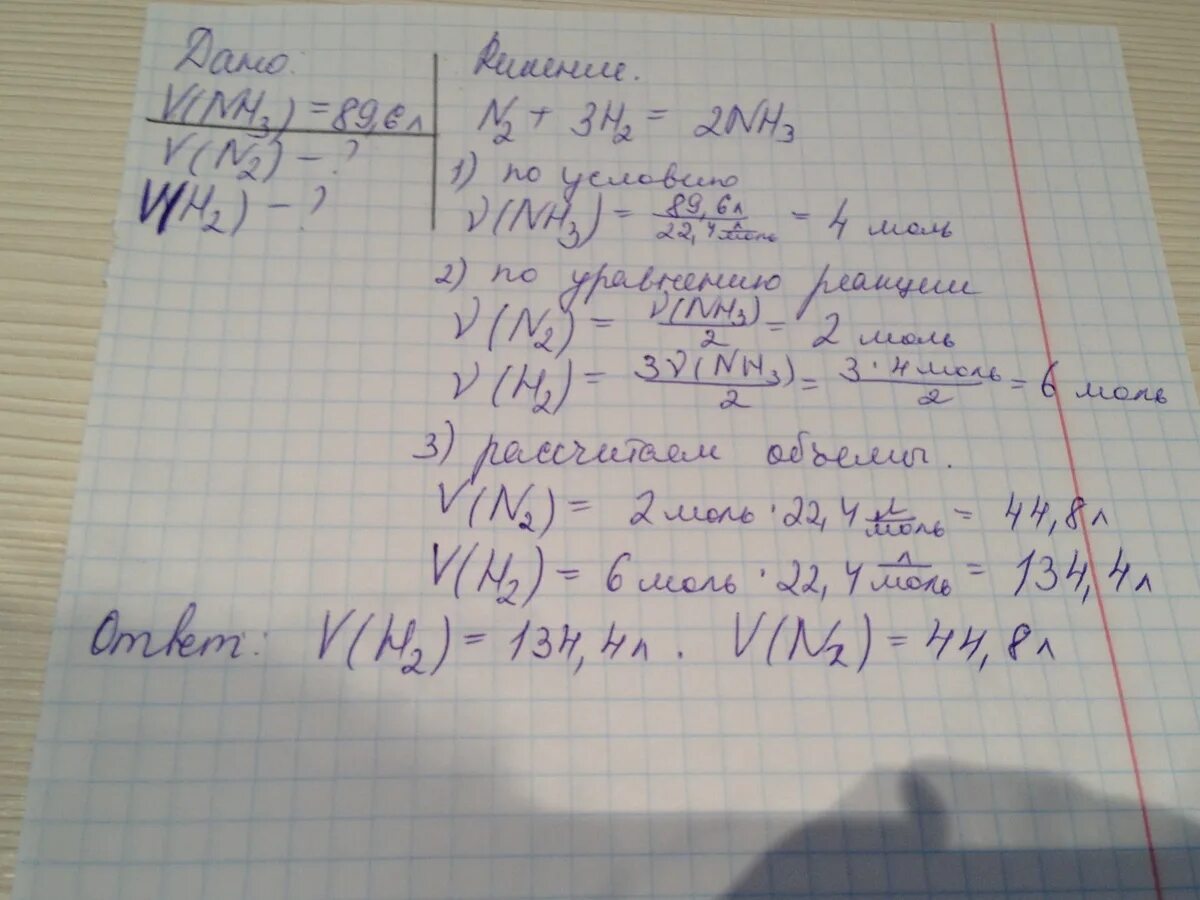 Дано:
V(NH₃) = 89,6 л
V(N₂) - ?
V(H₂) - ?
Решение.
N₂ + 3H₂ = 2NH₃
1) по условию
ν(NH₃) = 89,6 л / 22,4 л/моль = 4 моль
2) по уравнению реакции
ν(N₂) = ν(NH₃) / 2 = 2 моль
ν(H₂) = 3ν(NH₃) / 2 = 3 · 4 моль / 2 = 6 моль
3) рассчитаем объемы.
V(N₂) = 2 моль · 22,4 л/моль = 44,8 л
V(H₂) = 6 моль · 22,4 л/моль = 134,4 л
Ответ: V(H₂) = 134,4 л. V(N₂) = 44,8 л